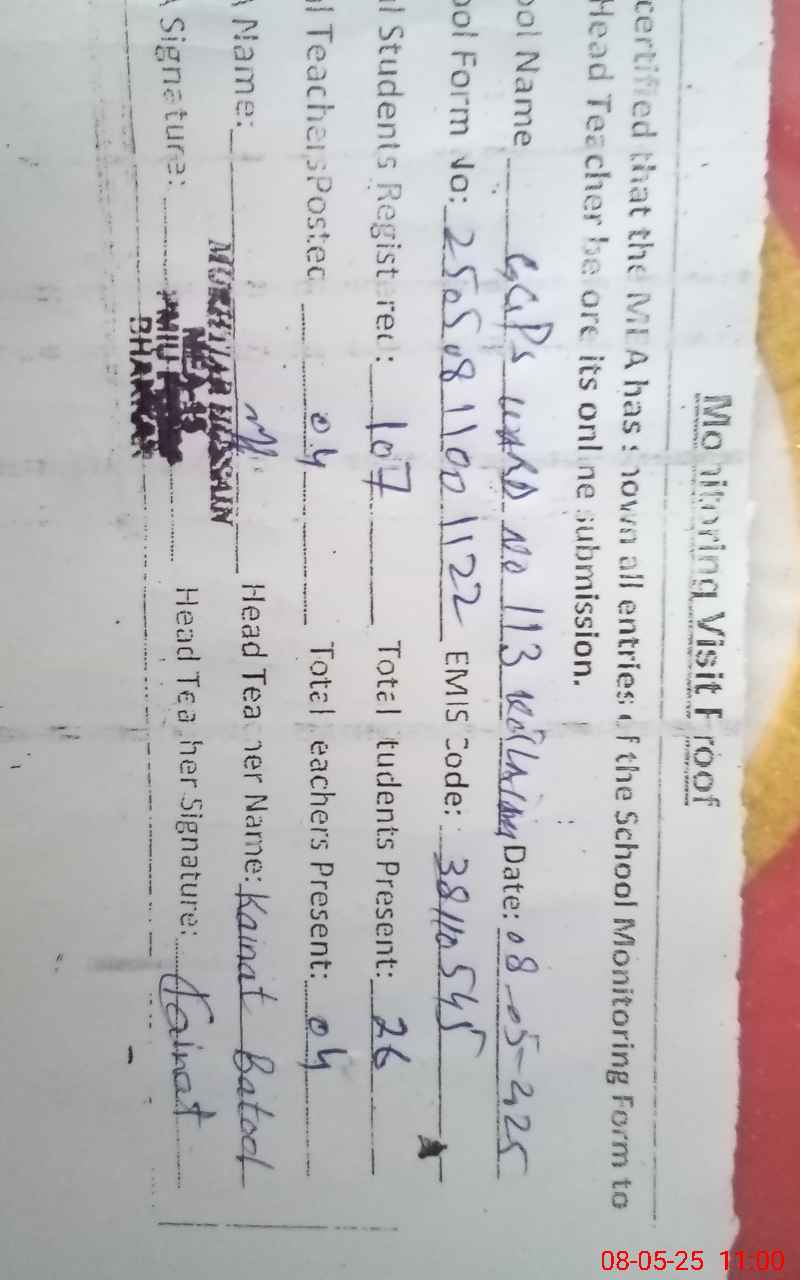 Monitoring Visit Proof
certified that the MEA has shown all entries of the School Monitoring Form to
Head Teacher before its online submission.
ool Name GGPS WARD No 113 Date: 08-05-2025
ool Form No: 25050811001122 EMIS Code: 38110545
l Students Registered: 107 Total Students Present: 26
l Teachers Posted 04 Total Teachers Present: 04
A Name: Head Teacher Name: Kainat Batool
A Signature: Head Teacher Signature: Kainat
MUKHTIAR HUSSAIN
MEA
BHAKKAR
08-05-25 11:00